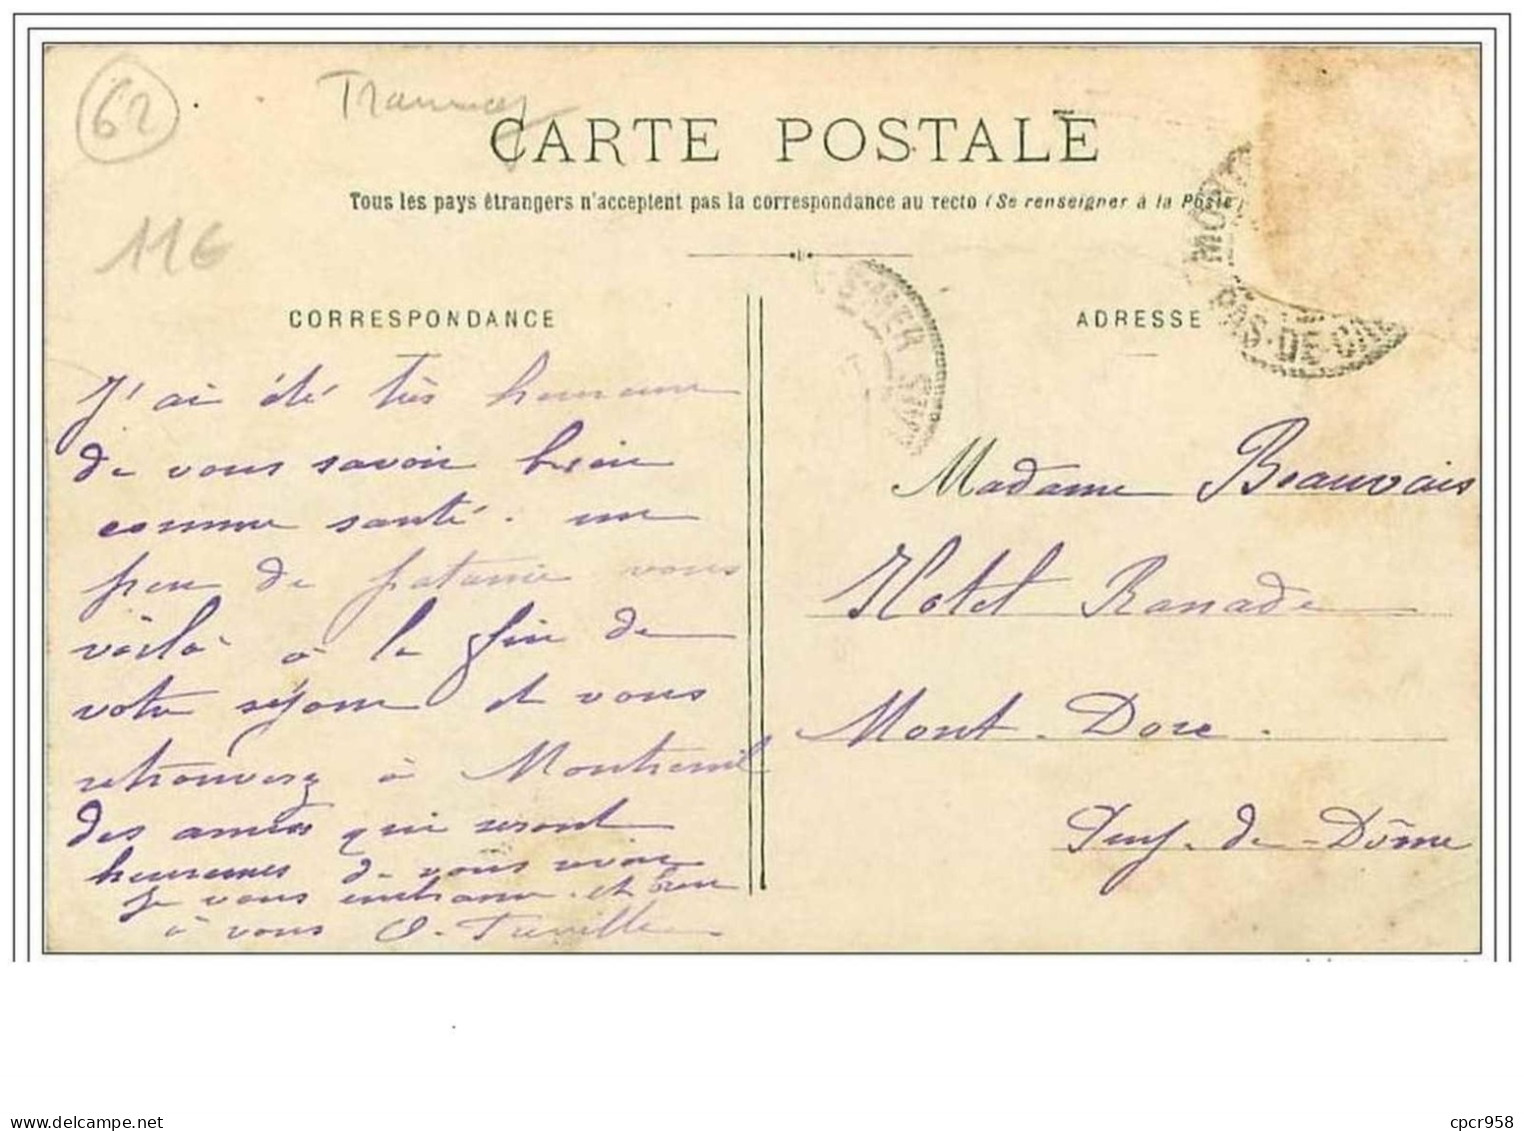 62
CARTE POSTALE
Tous les pays étrangers n'acceptent pas la correspondance au recto (Se renseigner à la Poste)
11€
CORRESPONDANCE
J'ai été très heureuse
de vous savoir bien
comme santé. un
peu de patience vous
voilà à la fin de
votre séjour et vous
retrouverez à Montreuil
des amies qui seront
heureuses de vous revoir
Je vous embrasse et bien
à vous O.
ADRESSE
PAS-DE-CAL
Madame Beauvais
Hotel Ramade
Mont-Dore.
Puy-de-Dôme
cpcr958